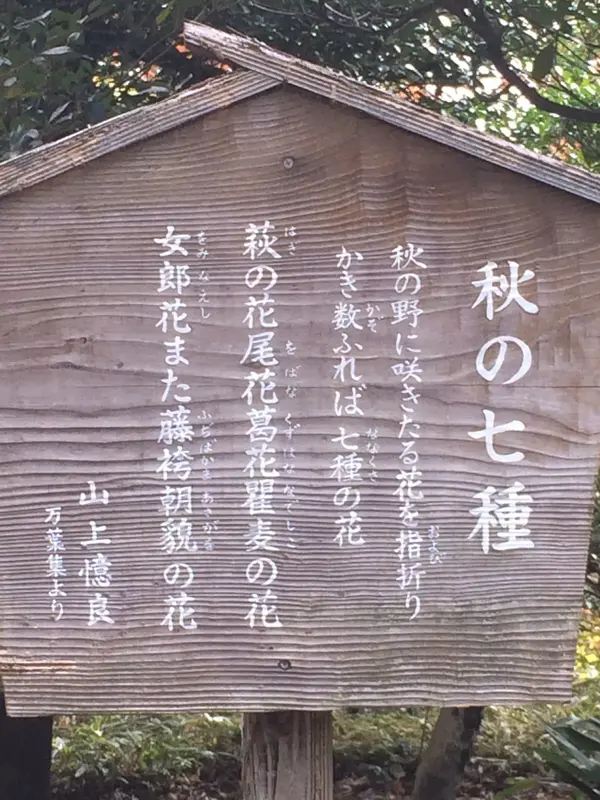 秋の七種
秋の野に咲きたる花を指折り
および
かき数ふれば七種の花
かぞ
ななくさ
萩の花尾花葛花瞿麦の花
はぎ
をばな
くずはな
なでしこ
女郎花また藤袴朝貌の花
をみなえし
ふぢばかま
あさがほ
山上憶良
万葉集より